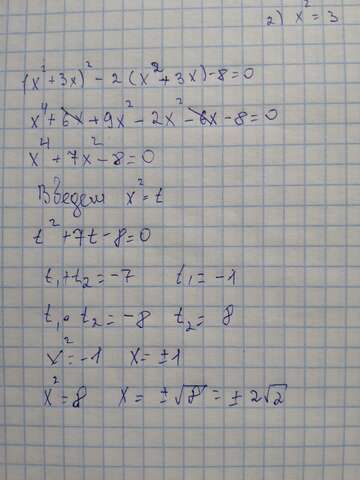 2) x² = 3
(x² + 3x)² - 2(x² + 3x) - 8 = 0
x⁴ + 6x + 9x² - 2x² - 6x - 8 = 0
x⁴ + 7x² - 8 = 0
Введем x² = t
t² + 7t - 8 = 0
t₁ + t₂ = -7 t₁ = -1
t₁ • t₂ = -8 t₂ = 8
x² = -1 x = ±1
x² = 8 x = ±√8 = ± 2√2